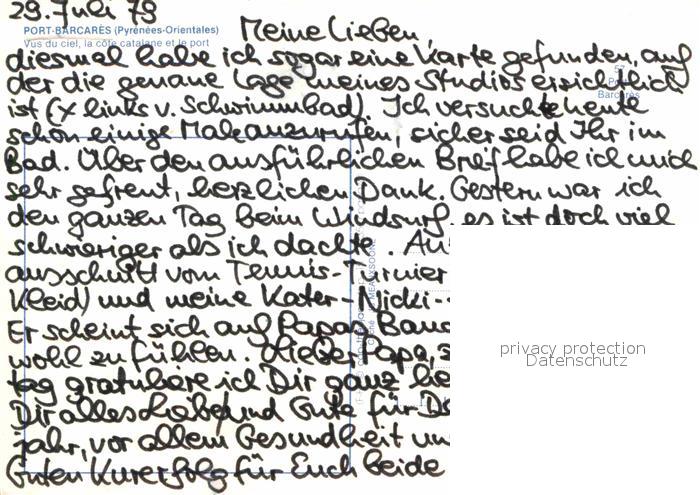 29. Juli 79
PORT-BARCARÈS (Pyrénées-Orientales)
Vus du ciel, la côte catalane et le port
Meine Lieben,
diesmal habe ich sogar eine Karte gefunden, auf
der die genaue Lage meines Studios ersichtlich
ist (x links v. Schwimmbad). Ich versuchte heute
schon einige Male anzurufen, sicher seid Ihr im
Bad. Über den ausführlichen Brief habe ich mich
sehr gefreut, herzlichen Dank. Gestern war ich
den ganzen Tag beim Windsurf, es ist doch viel
schwieriger als ich dachte.
ausschnitt vom Tennis-Turnier
Kleid) und meine Kater-Nicki-
Er scheint sich auf Papas
wohl zu fühlen. Lieber Papa,
tag gratuliere ich Dir ganz
Dir alles Liebe und Gute für
jahr, vor allem Gesundheit
Guten Kurerfolg für Euch beide
privacy protection
Datenschutz